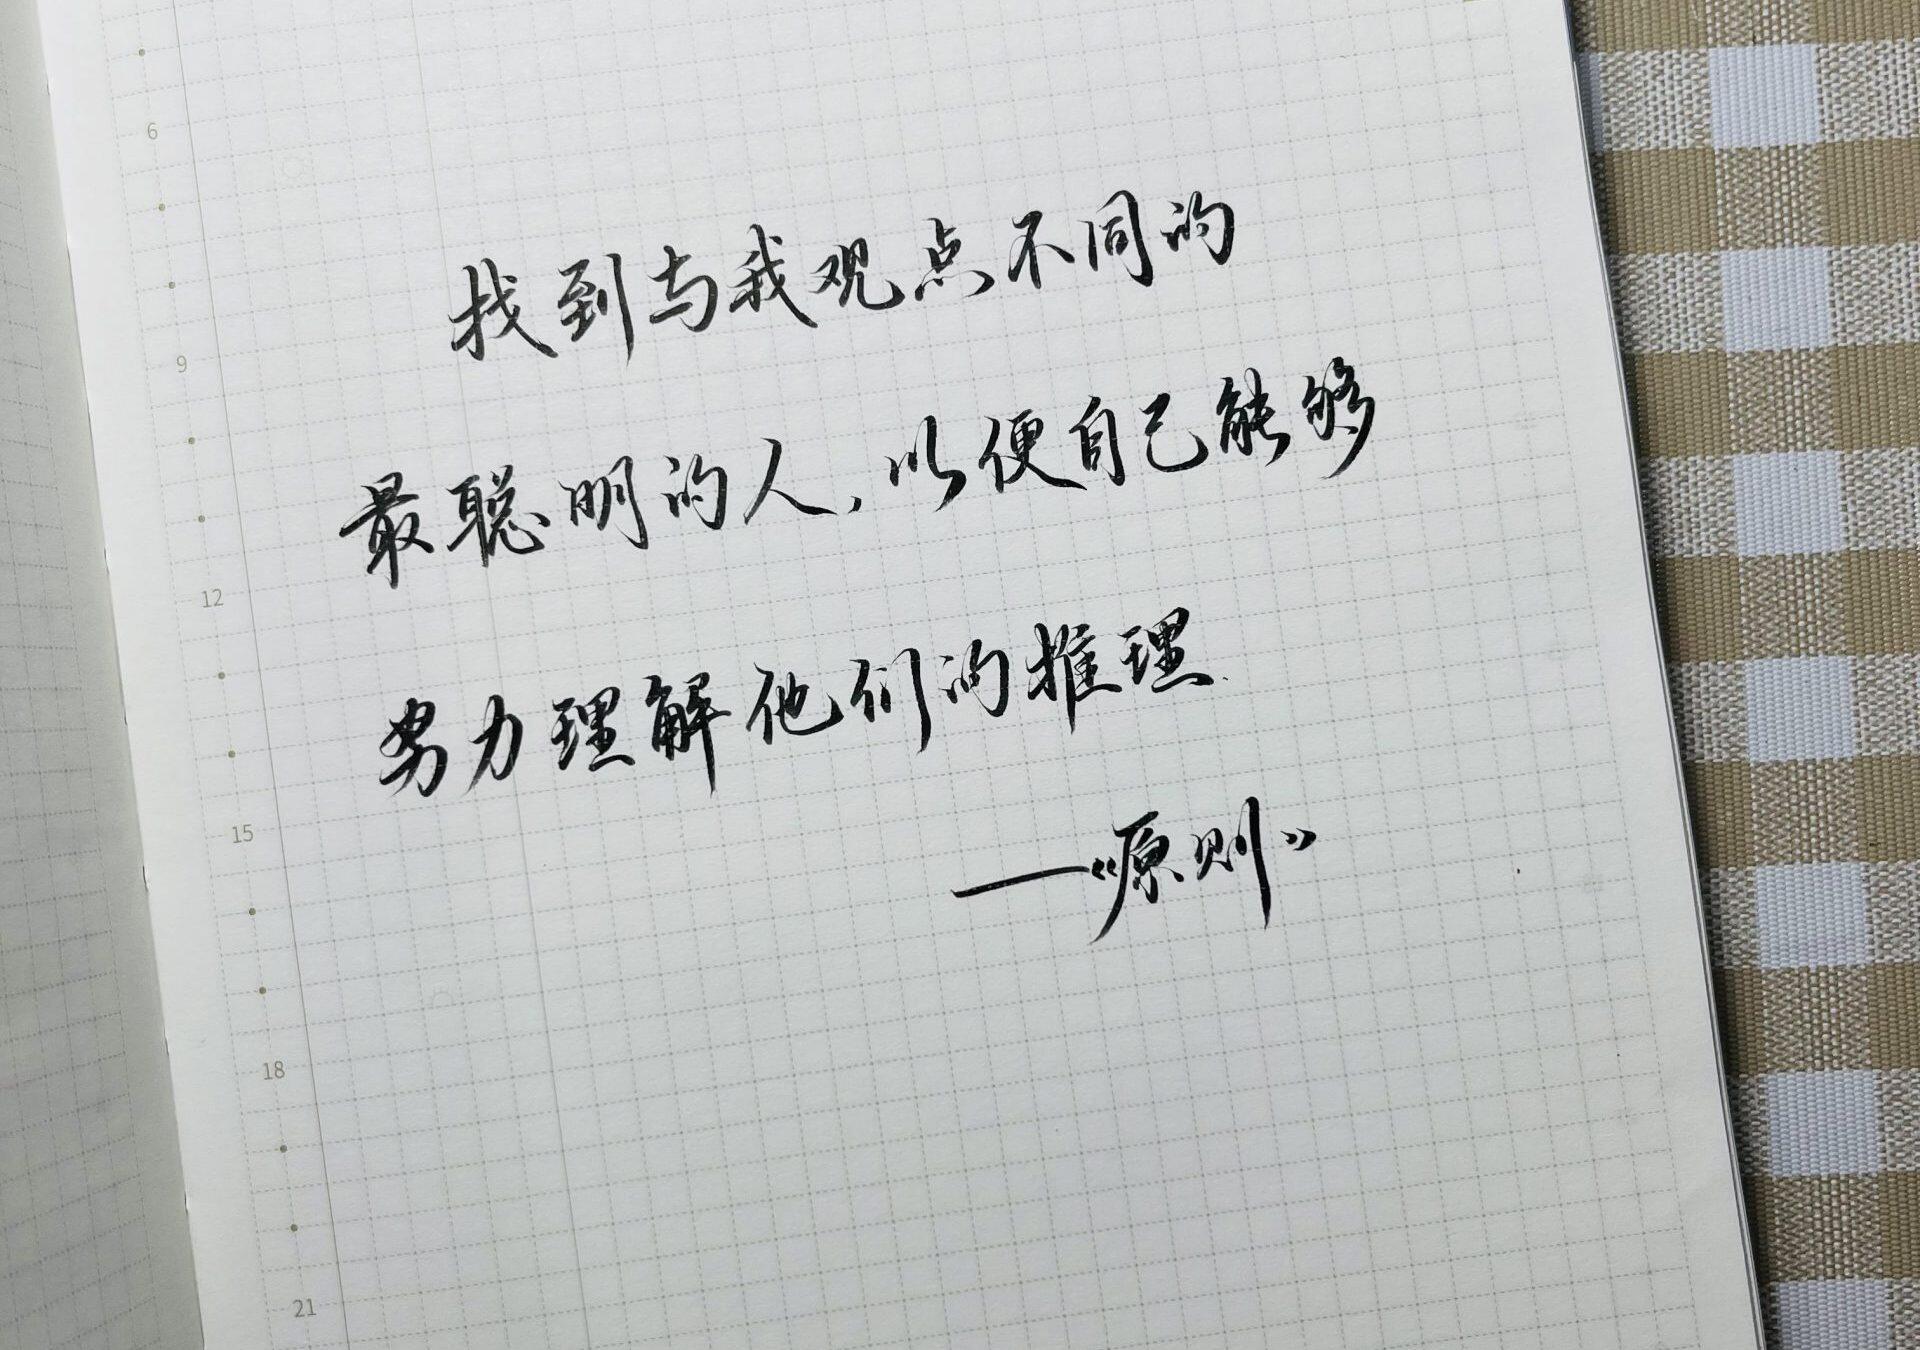 6
9
12
15
18
21
找到与我观点不同的
最聪明的人，以便自己能够
努力理解他们的推理.
—《原则》